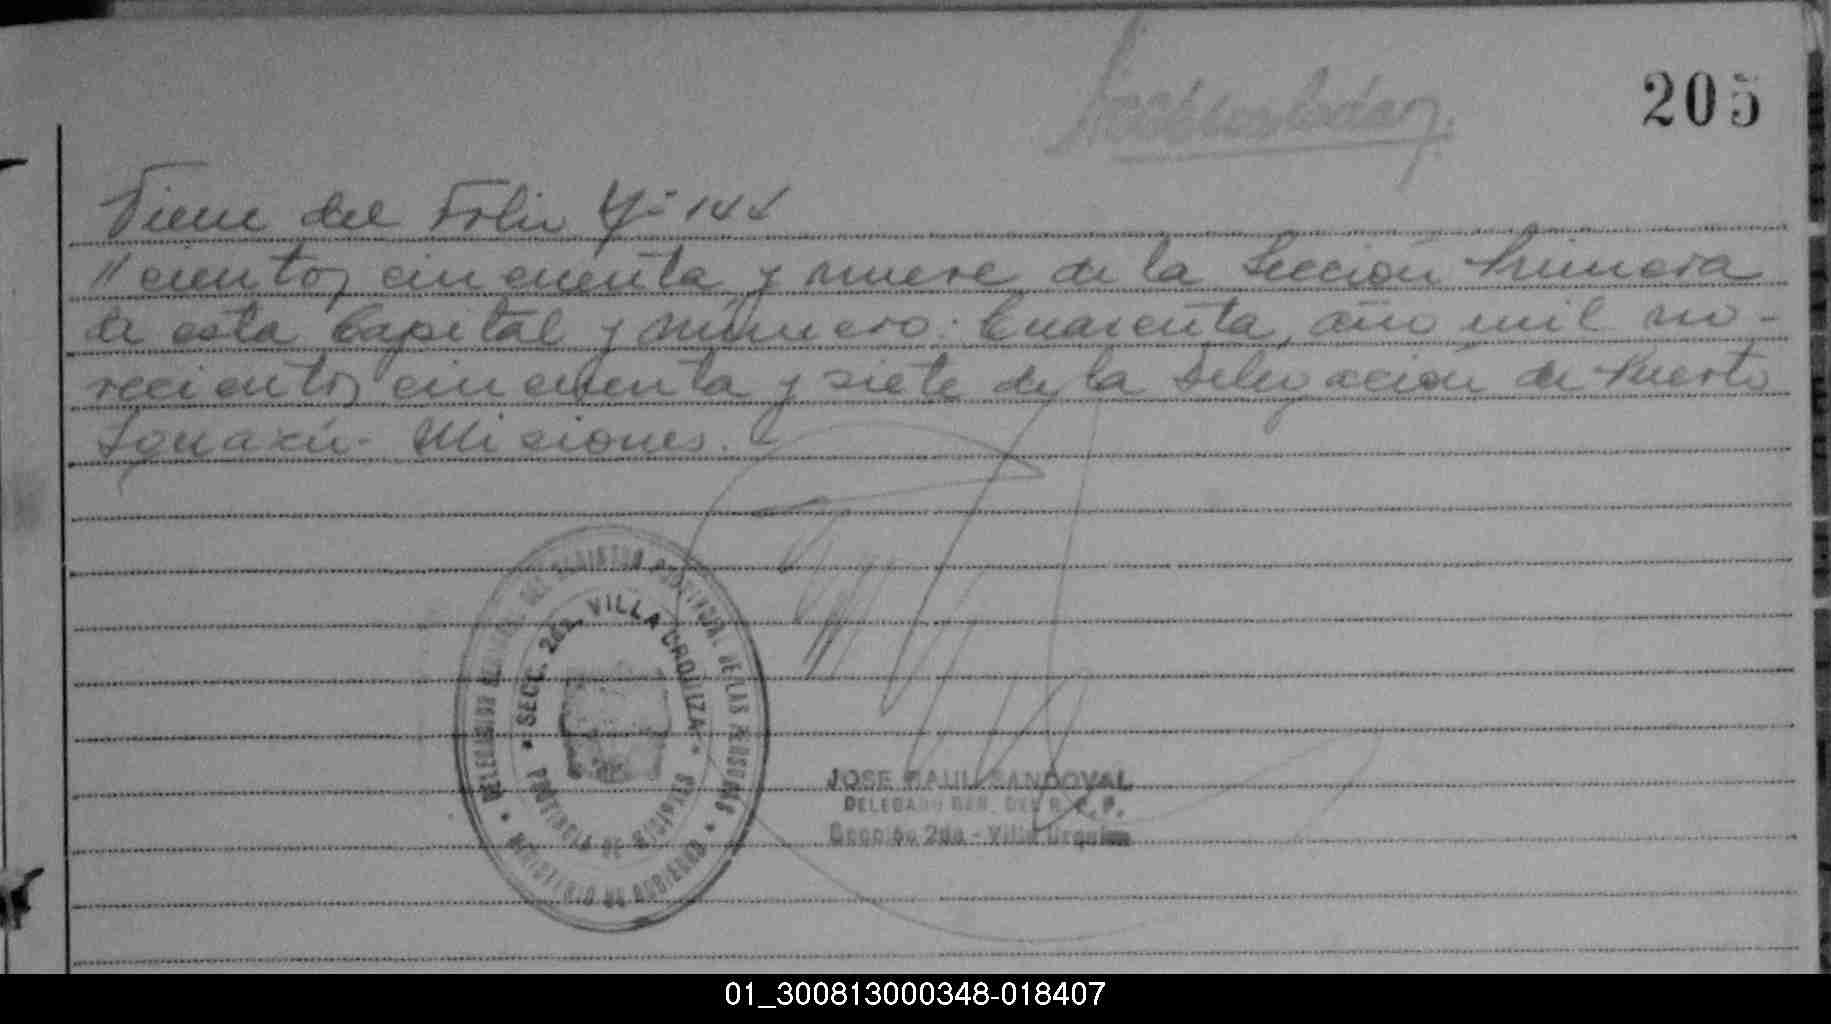 205
Viene del Folio Nº 144
// cientos cincuenta y nueve de la Sección Primera
de esta Capital y número: Cuarenta, año mil no-
vecientos cincuenta y siete de la Delegación de Puerto
Iguazú - Misiones.
DELEGACION GENERAL DEL REGISTRO PROVINCIAL DE LAS PERSONAS
SECC. 2da. VILLA URQUIZA
PROVINCIA DE MISIONES
MINISTERIO DE GOBIERNO
JOSE RAUL SANDOVAL
DELEGADO GER. DEL R. P. P.
Sección 2da - Villa Urquiza
01_300813000348-018407